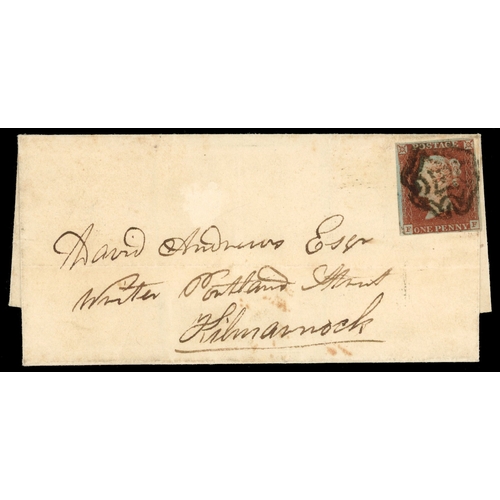 POSTAGE
ONE PENNY
David Andrews Esqr
Writer Portland Street
Kilmarnock